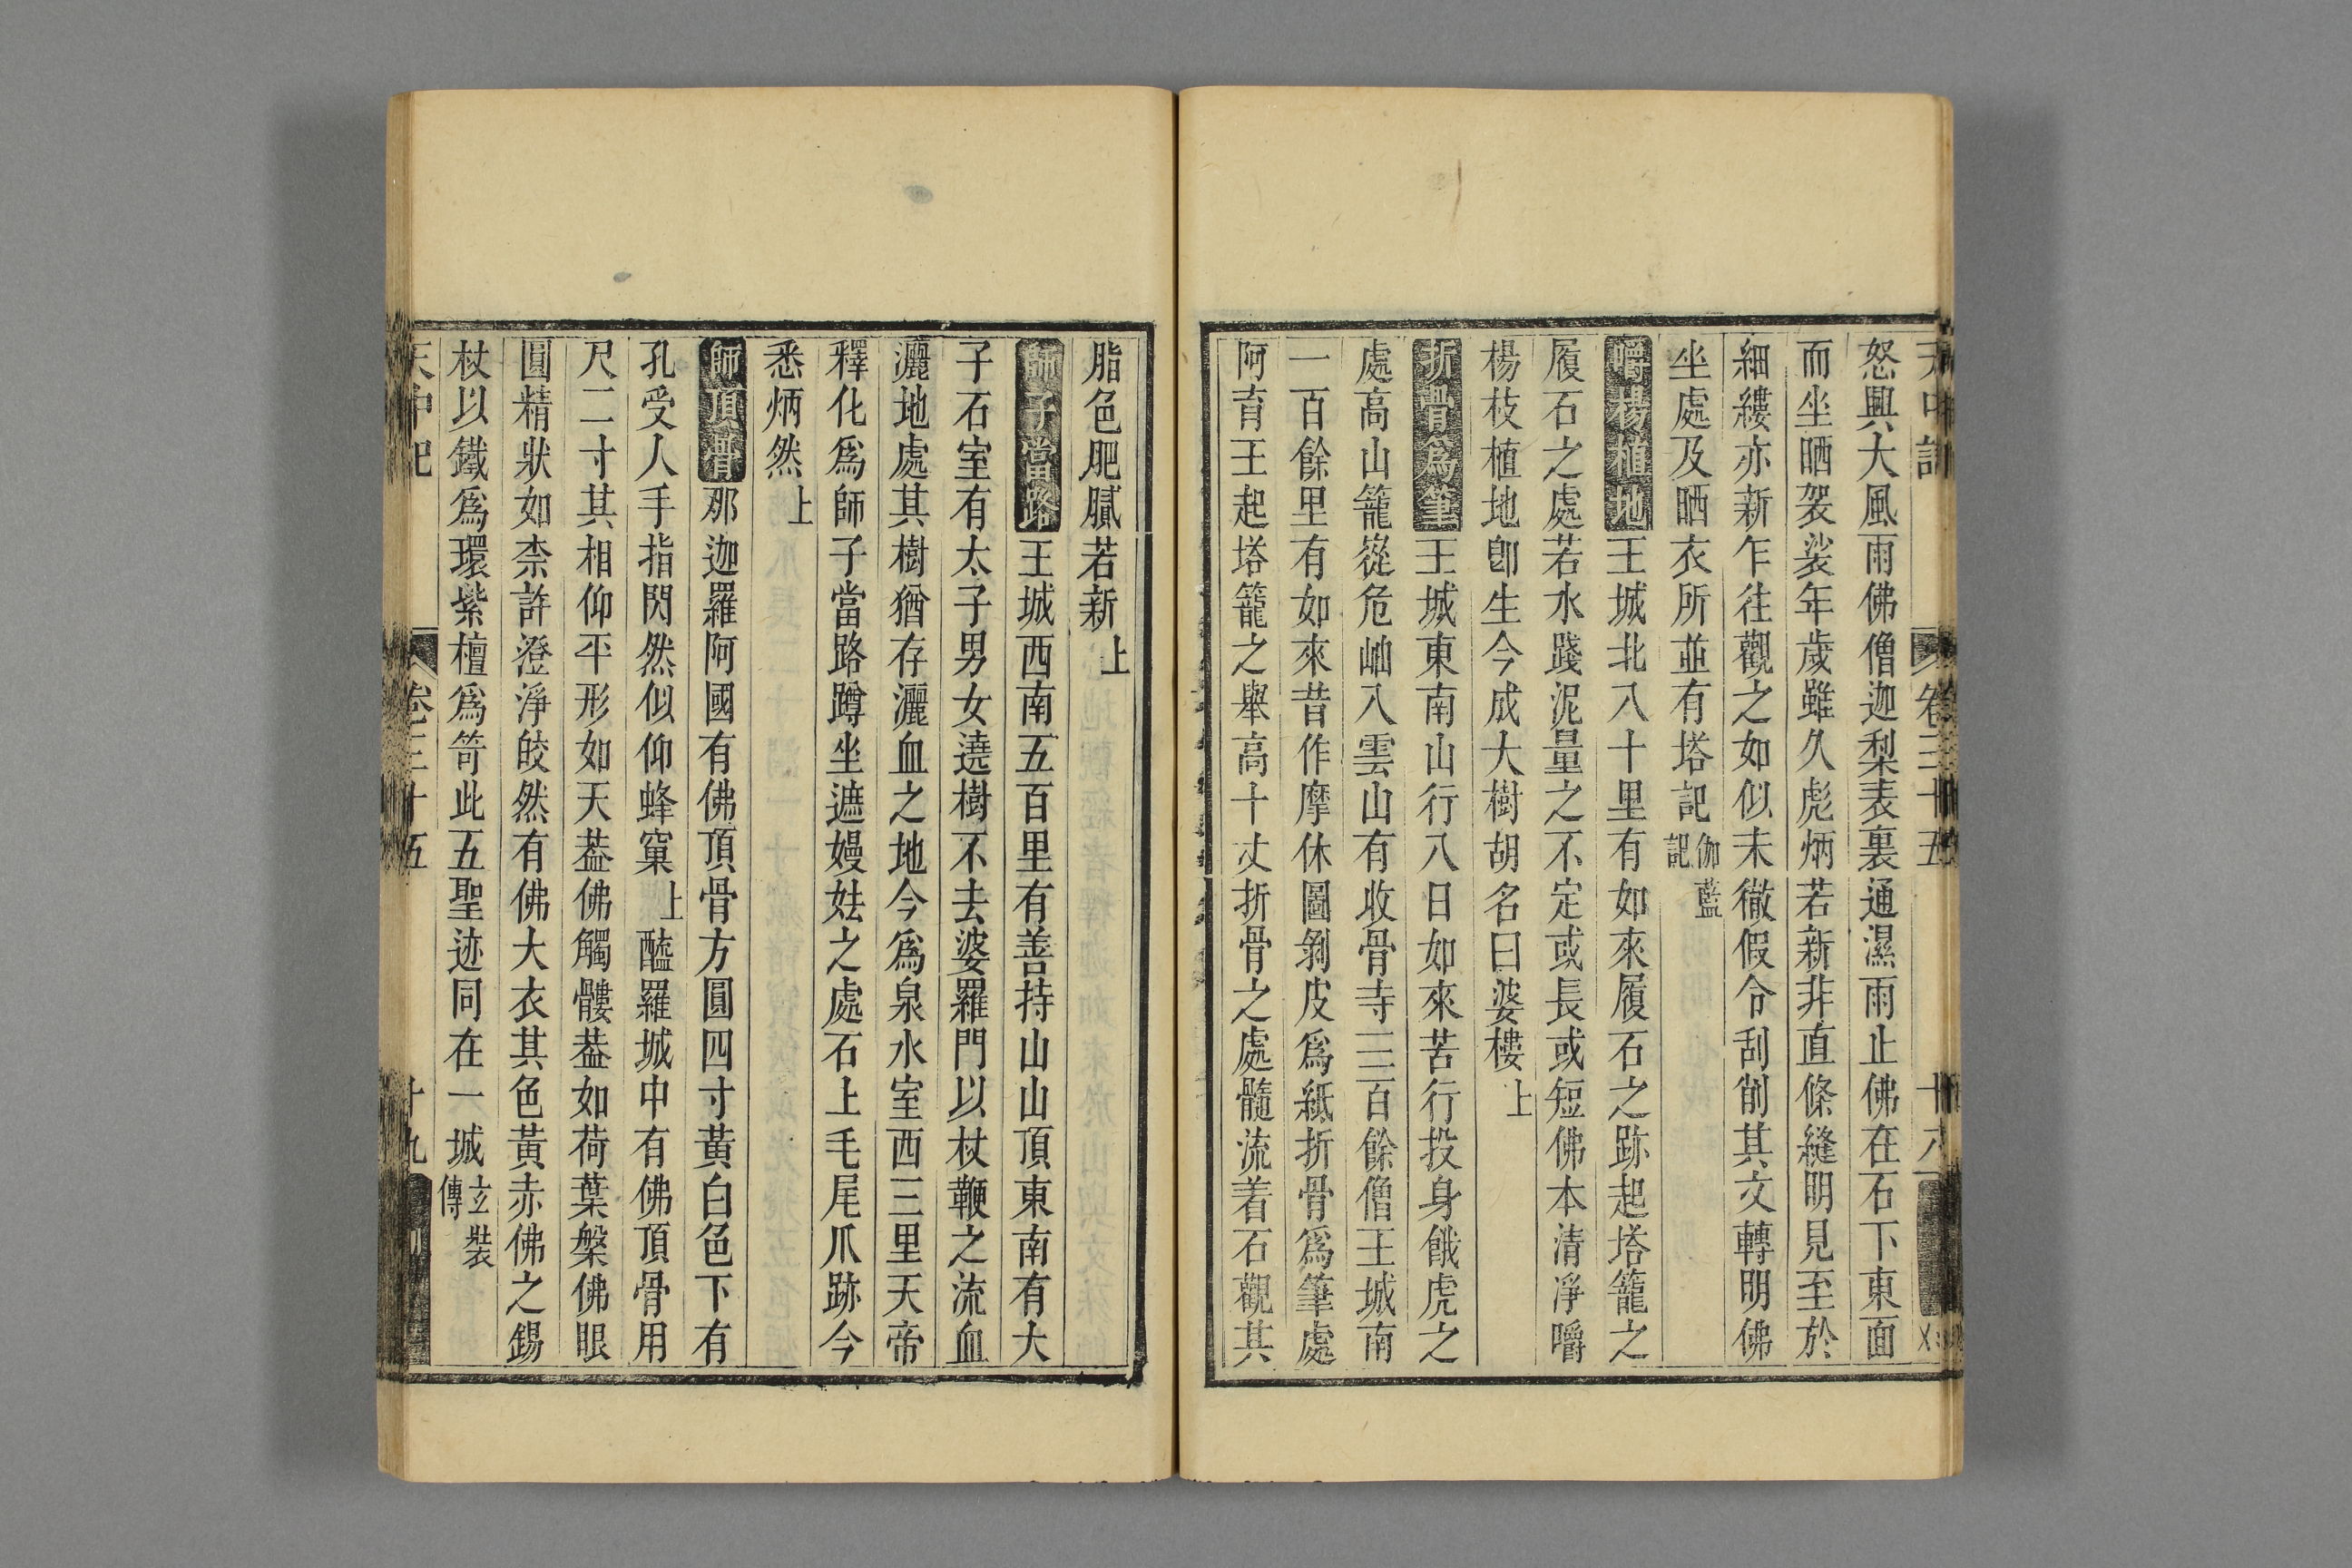 天中記 卷三十五 十八
怒興大風雨佛僧迦梨表裏通濕雨止佛在石下東面
而坐晒袈裟年歲雖久彪炳若新非直條縫明見至於
細縷亦新乍往觀之如似未徹假令刮削其文轉明佛
坐處及晒衣所並有塔記伽藍記
嚼楊植地王城北八十里有如來履石之跡起塔籠之
履石之處若水踐泥量之不定或長或短佛本清凈嚼
楊枝植地卽生今成大樹胡名曰婆樓上
折骨爲筆王城東南山行八日如來苦行投身餓虎之
處高山籠嵸危岫入雲山有收骨寺三百餘僧王城南
一百餘里有如來昔作摩休圖剝皮爲紙折骨爲筆處
阿育王起塔籠之舉高十丈折骨之處髓流着石觀其
脂色肥膩若新上
師子當路王城西南五百里有善持山山頂東南有大
子石室有太子男女遶樹不去婆羅門以杖鞭之流血
灑地處其樹猶存灑血之地今爲泉水室西三里天帝
釋化爲師子當路蹲坐遮嫚妶之處石上毛尾爪跡今
悉炳然上
師頂骨那迦羅阿國有佛頂骨方圓四寸黃白色下有
孔受人手指閃然似仰蜂窠上醯羅城中有佛頂骨用
尺二寸其相仰平形如天葢佛觸髏葢如荷葉槃佛眼
圓精狀如柰許澄淨皎然有佛大衣其色黃赤佛之錫
杖以鐵爲環紫檀爲笴此五聖迹同在一城玄裝傳
天中記 卷三十五 十九